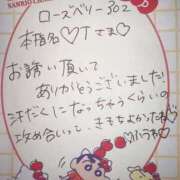 SANRIO CHARAC
ローズベリー302
本指名♡Tさま♡
お誘い頂いて
ありがとうございました!
汗だくになっちゃうくらいの
攻め合いって、きもちよかったね♡